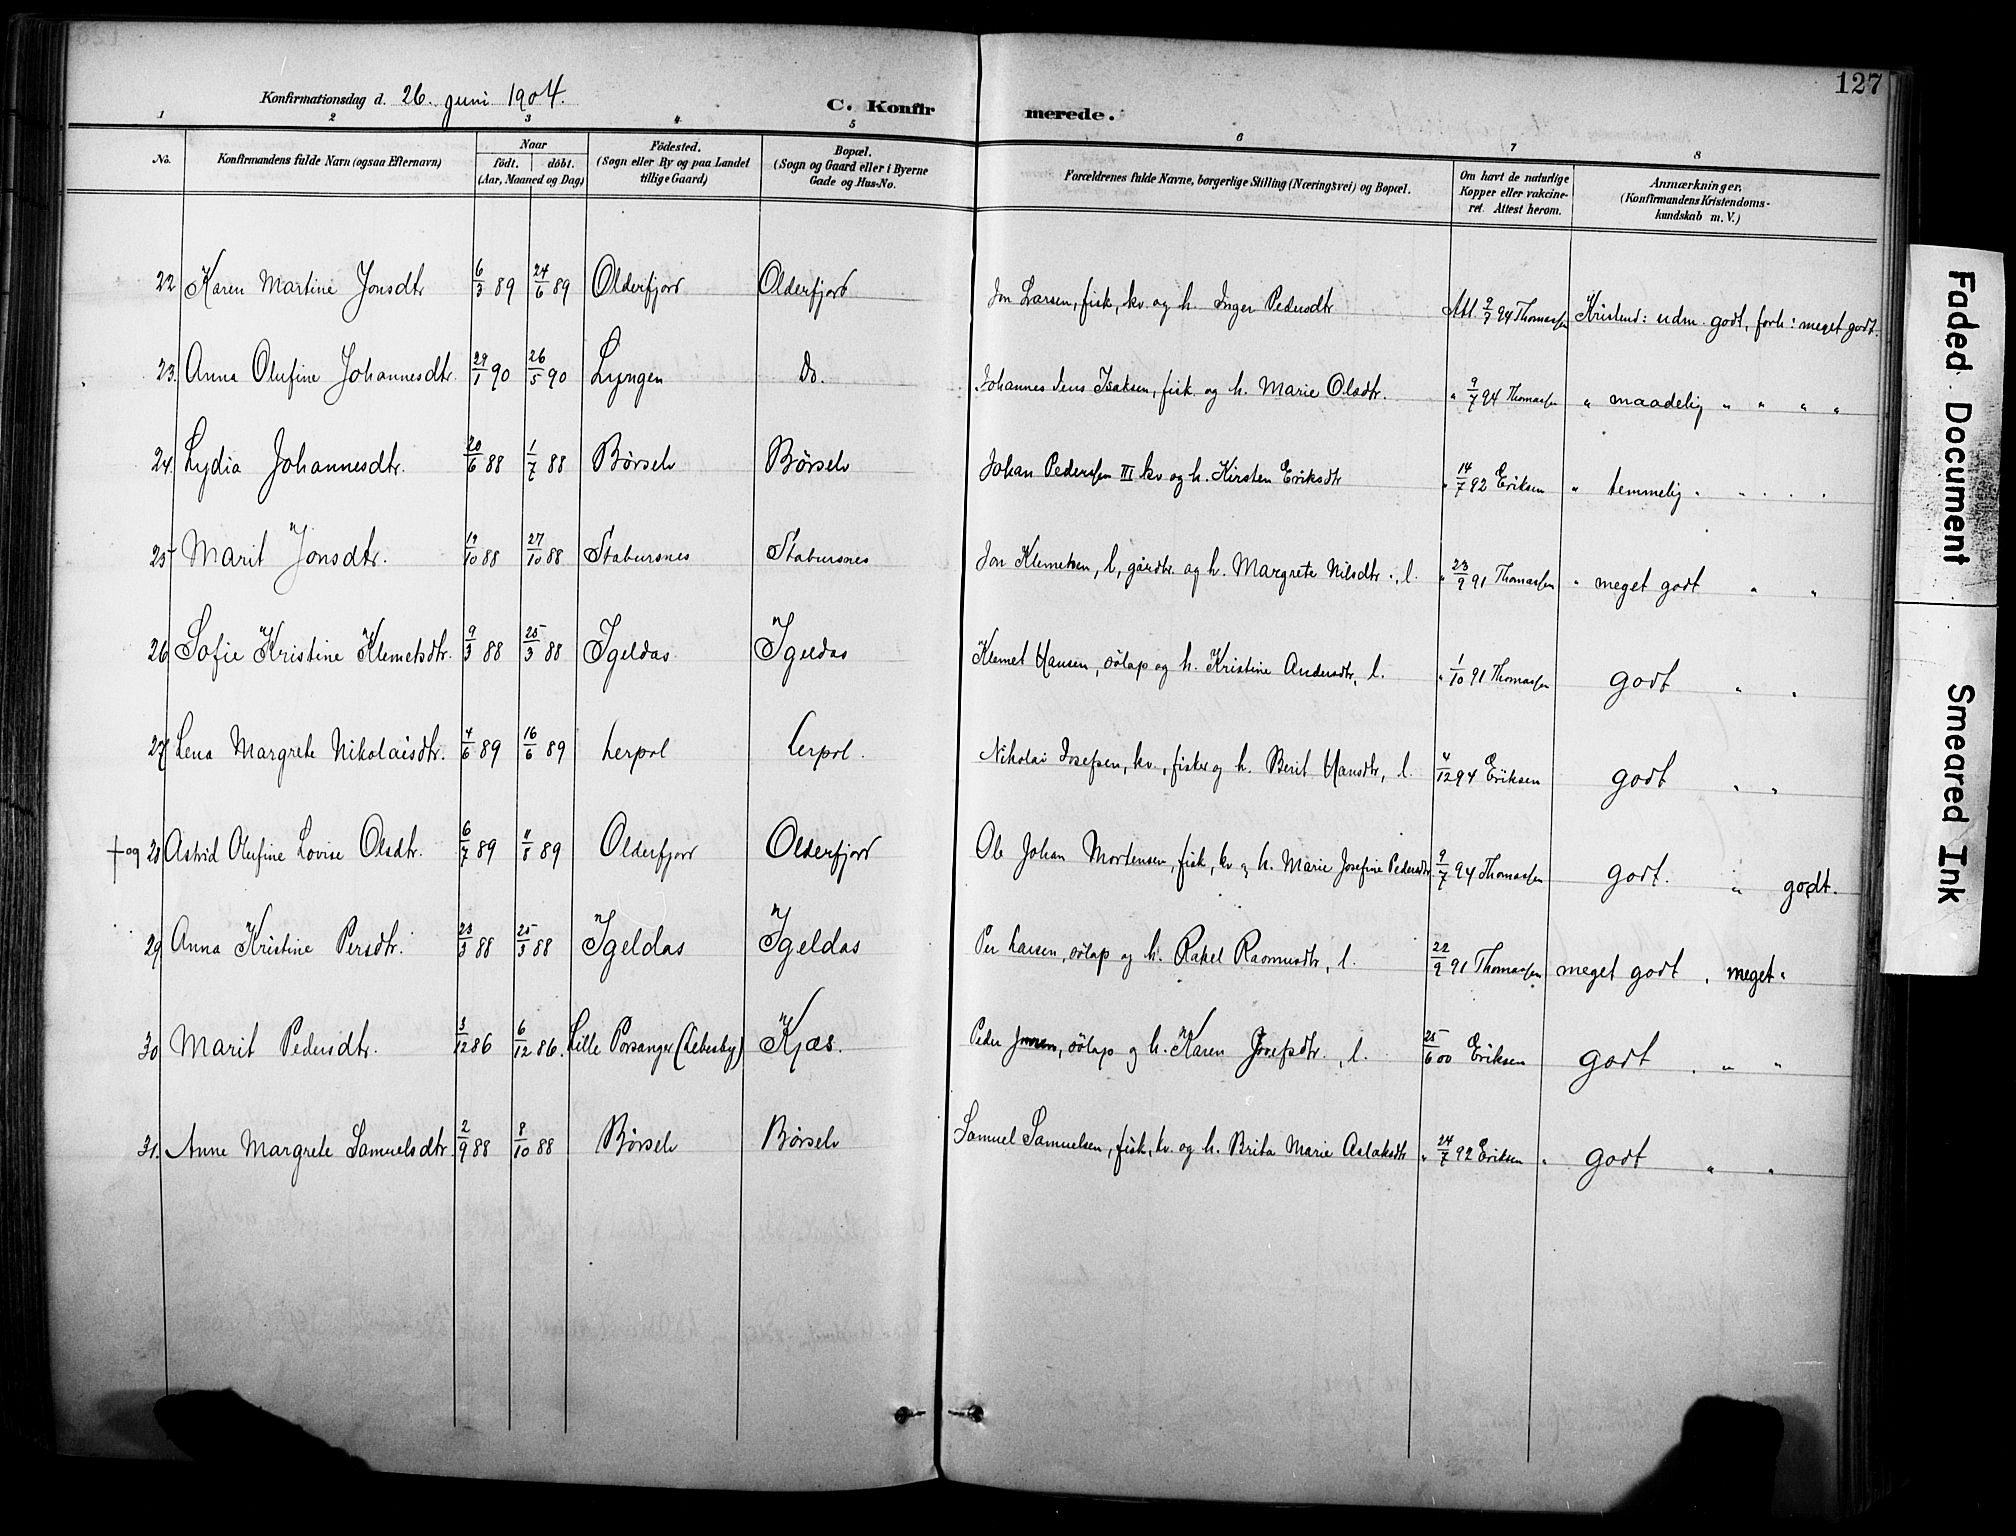 127
Konfirmationsdag d. 26. juni 1904.
C. Konfirmerede.
1 2 3 4 5 6 7 8
No.
Konfirmandens fulde Navn (ogsaa Efternavn)
Naar
födt. döbt.
(Aar, Maaned og Dag)
Födested.
(Sogn eller By og paa Landet
tillige Gaard)
Bopæl.
(Sogn og Gaard eller i Byerne
Gade og Hus-No.
Forældrenes fulde Navne, borgerlige Stilling (Næringsvei) og Bopæl.
Om havt de naturlige
Kopper eller vakcine-
ret. Attest herom.
Anmærkninger.
(Konfirmandens Kristendoms-
kundskab m. V.)
22 Karen Martine Jonsdtr 6/3 89 24/6 89 Olderfjord Olderfjord Jon Larsen, fisk, kv. og h. Inger Pedersdtr Att. 9/7 94 Thomassen Kristend: udm. godt, forh: meget godt.
23. Anna Olufine Johannesdtr. 29/1 90 26/5 90 Lyngen Do. Johannes Jens Isaksen, fisk. og h. Marie Olsdtr. " 9/7 94 Thomassen " maadelig " " " "
24. Lydia Johannesdtr. 20/6 88 1/7 88 Börselv Börselv Johan Pedersen III kv og h. Kirsten Eriksdtr " 14/7 92 Eriksen " temmelig " " " "
25 Marit Jonsdtr. 19/10 88 27/10 88 Stabursnes Stabursnes Jon Klemetsen, l, gårdbr. og h. Margrete Nilsdtr., l. " 23/9 91 Thomassen " meget godt " "
26 Sofie Kristine Klemetsdtr. 9/3 88 25/3 88 Igeldas Igeldas Klemet Hansen, sölap og h. Kristine Andersdtr, l. " 1/10 91 Thomassen godt " "
27 Lena Margrete Nikolaisdtr. 4/6 89 16/6 89 Lerpol Lerpol. Nikolai Josefsen, kv., fisker og h. Berit Hansdtr, l. 4/12 94 Eriksen godt " "
† og 28 Astrid Olufine Lovise Olsdtr. 6/7 89 11/8 89 Olderfjord Olderfjord Ole Johan Mortensen, fisk, kv og h. Marie Josefine Pedersdtr 9/7 94 Thomassen godt. " godt.
29 Anna Kristine Persdtr. 23/3 88 25/3 88 Igeldas Igeldas Per Larsen, sölap og h. Rakel Rasmusdtr, l. 22/9 91 Thomassen meget godt " meget "
30 Marit Pedersdtr. 3/12 86 6/12 86. Lille Porsanger (Lebesby) Kjæs. Peder, sölap og h. Karen Josefsdtr., l. 25/6 00 Eriksen godt " " "
31. Anne Margrete Samuelsdtr 2/9 88 8/10 88 Börselv Börselv Samuel Samuelsen, fisk, kv. og h. Brita Marie Aslaksdtr " 24/7 92 Eriksen " godt " "
Faded Document
Smeared Ink